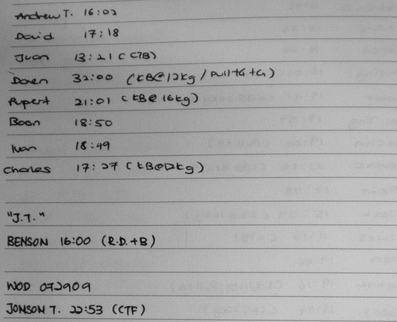 Andrew T. 16:02
David 17:18
Juan 13:21 (CTB)
Doen 32:00 (KB@12kg / Pull+G+G)
Rupert 21:01 (KB@16kg)
Boon 18:50
Ivan 18:49
Charles 17:27 (KB@12kg)
"J.T."
BENSON 16:00 (R.D.+B)
WOD 072909
JONSON T. 22:53 (CTF)